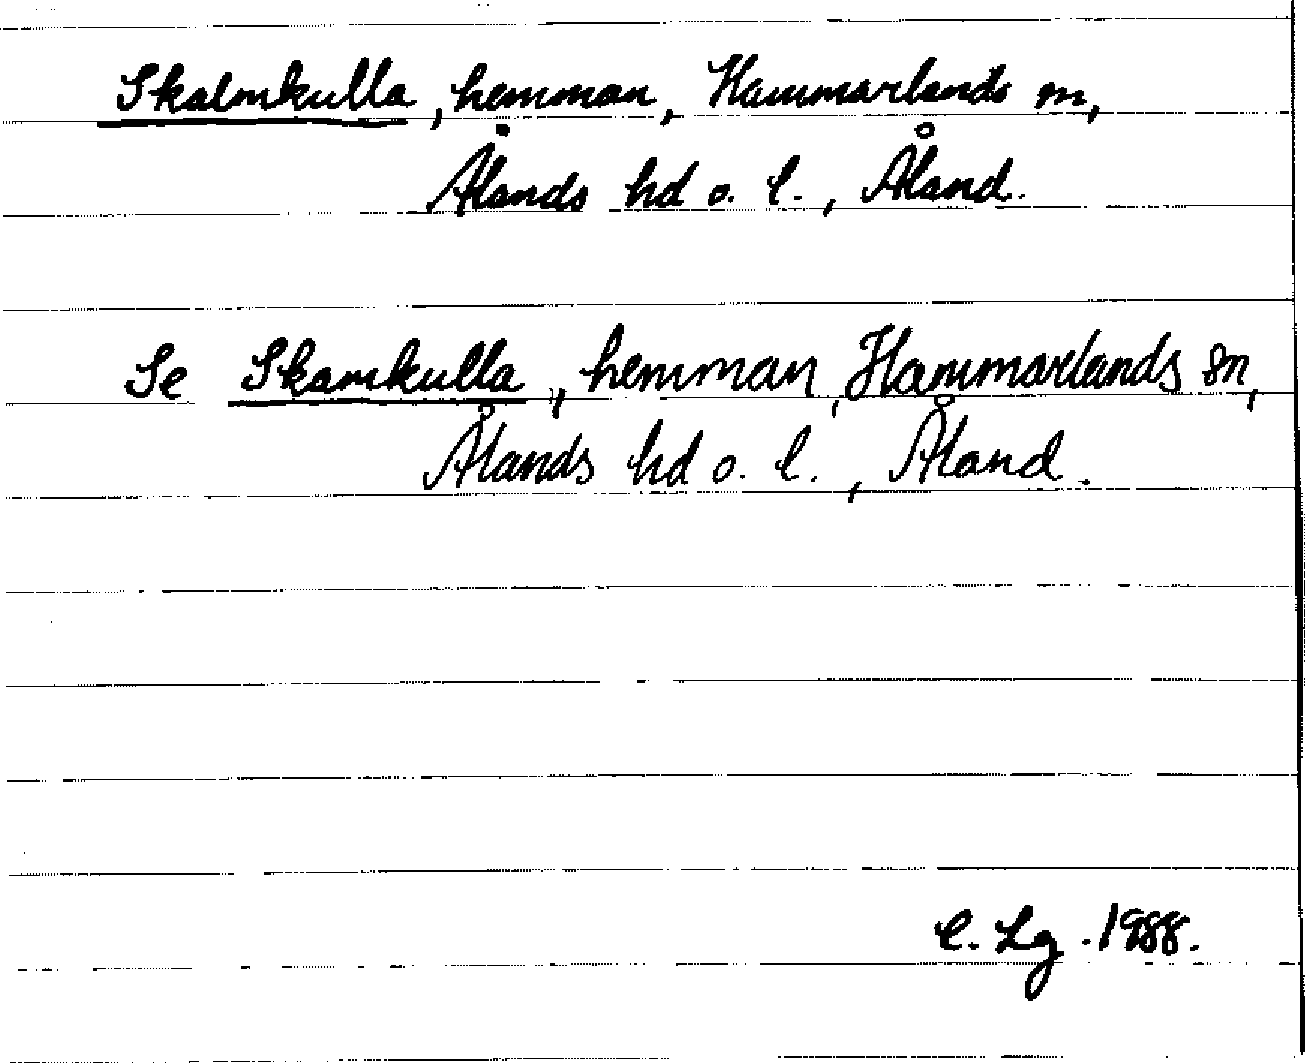 Skalmkulla, hemman, Hammarlands sn,
Ålands hd o. l., Åland.
Se Skamkulla, hemman, Hammarlands sn,
Ålands hd o. l., Åland.
C. Lg. 1988.